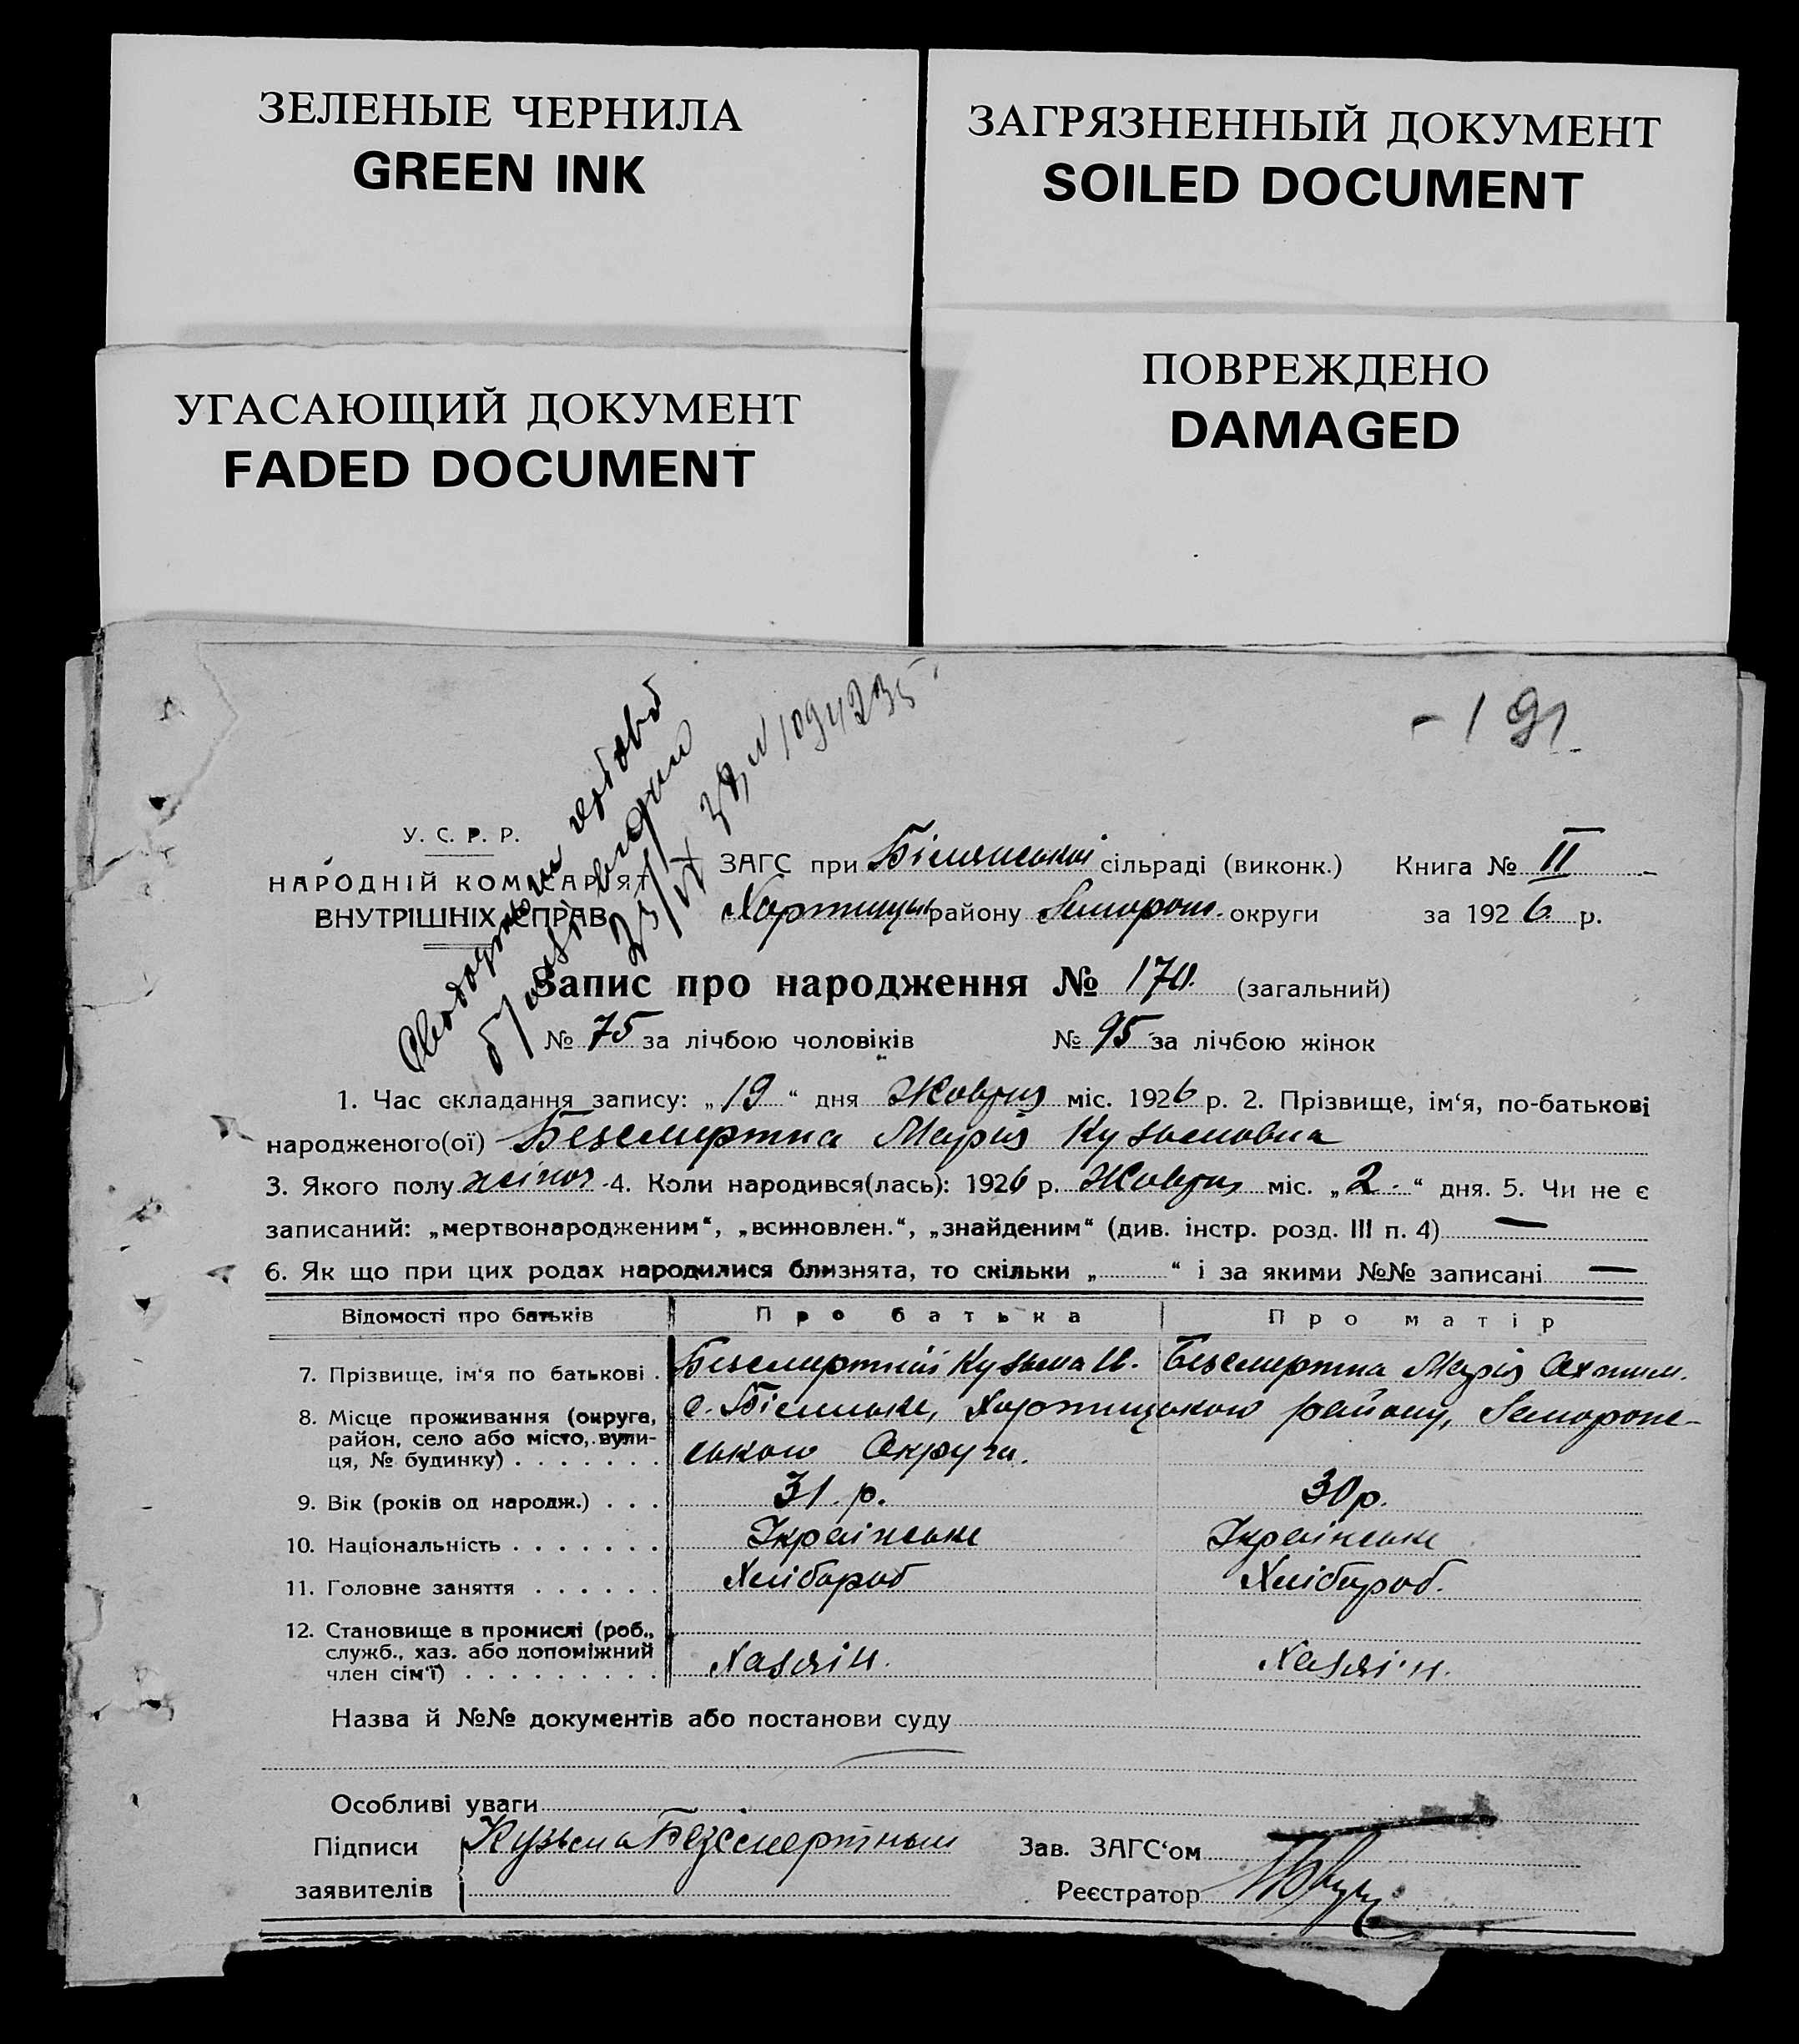 ЗЕЛЕНЫЕ ЧЕРНИЛА
GREEN INK
ЗАГРЯЗНЕННЫЙ ДОКУМЕНТ
SOILED DOCUMENT
УГАСАЮЩИЙ ДОКУМЕНТ
FADED DOCUMENT
ПОВРЕЖДЕНО
DAMAGED
- 191
№ 1094235
У. С. Р. Р.
НАРОДНІЙ КОМІСАРІЯТ
ВНУТРІШНІХ СПРАВ
ЗАГС при Білянської сільраді (виконк.) Книга № II
Хортицьк району Запорож. округи за 1926 р.
Запис про народження № 170. (загальний)
№ 75 за лічбою чоловіків № 95 за лічбою жінок
1. Час складання запису: „19“ дня Жовтня міс. 1926 р. 2. Прізвище, ім‘я, по-батькові
народженого(ої) Безсмертна Марія Кузьмовна
3. Якого полу жіноч. 4. Коли народився(лась): 1926 р. Жовтня міс. „2.“ дня. 5. Чи не є
записаний: „мертвонародженим“, „всиновлен.“, „знайденим“ (див. інстр. розд. III п. 4) —
6. Як що при цих родах народилися близнята, то скільки „ “ і за якими №№ записані —
Відомості про батьків Про батька Про матір
7. Прізвище, ім‘я по батькові . Безсмертній Кузьма И. Безсмертна Марія
8. Місце проживання (округа, район, село або місто, вули-ця, № будинку) . . . . . . . с. Біленьке, Хортицького району, Запорожс-
ького Округи.
9. Вік (років од народж.) . . . 31. р. 30 р.
10. Національність . . . . . . . Українське Українське
11. Головне заняття . . . . . . Хлібороб Хлібороб.
12. Становище в промислі (роб., служб., хаз. або допоміжний член сім‘ї) . . . . . . . . . Хазяін. Хазяін.
Назва й №№ документів або постанови суду
Особливі уваги
Підписи Кузьма Безсмертный Зав. ЗАГС‘ом
заявителів Реєстратор